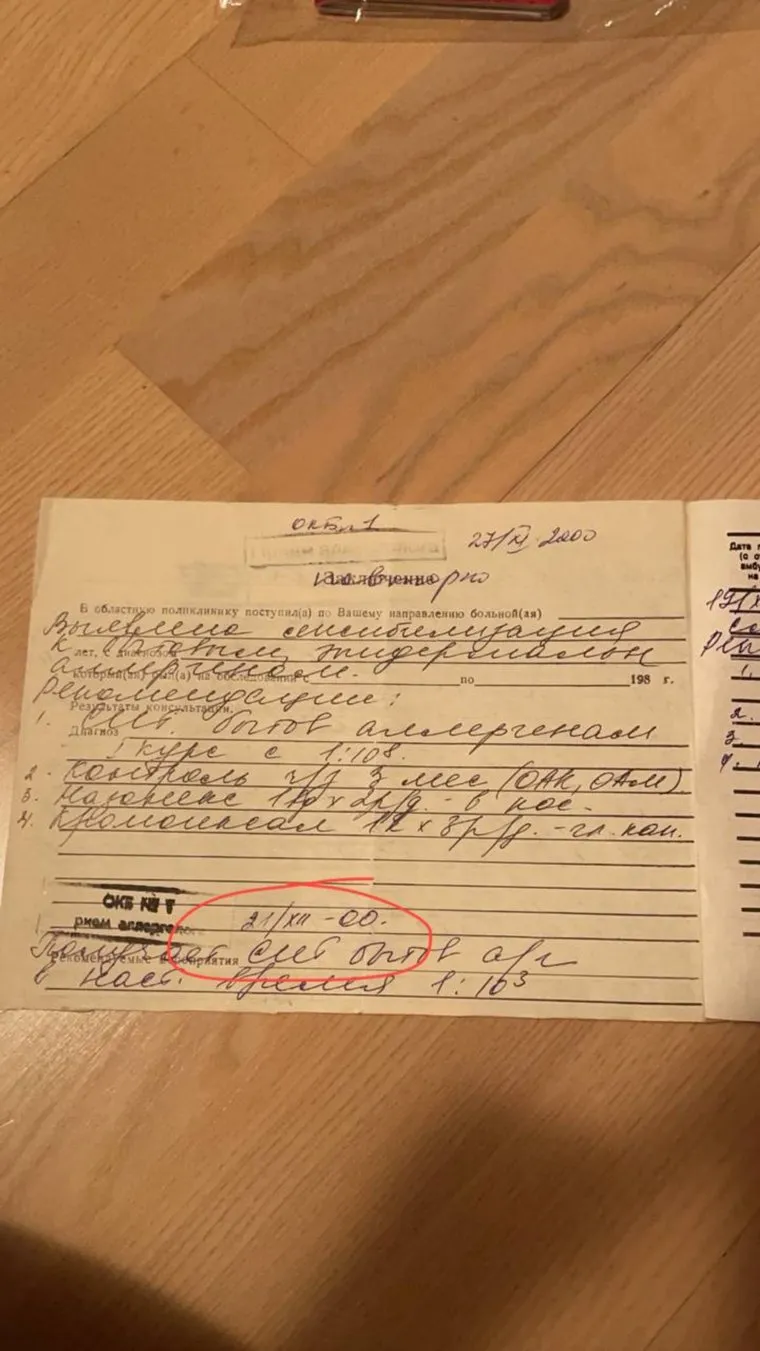 ОКБ №1
27/XI-2000
Заключение
повторно
В областную поликлинику поступил(а) по Вашему направлению больной(ая)
Выявлена сенсибилизация
к бытовым, эпидермальн
лет, с диагнозом
аллергенам.
который(ая) был(а) на обследовании с по 198 г.
Рекомендации:
Результаты консультации.
1. СИТ бытов аллергенам
Диагноз
1 курс с 1:108.
2. Контроль ч/з 3 мес (ОАК, ОАМ)
3. Назонекс 1 д x 2 р/д. - в нос.
4. Кромогексал 1к x 3 р/д. - гл. кап.
ОКБ № 1
рием аллерголо
21/XII-00.
Получает СИТ бытов а/г
Рекомендуемые мероприятия
в наст. время 1:10³
Дата
(с о
амбу
на
19/X
1.
2.
3
4.